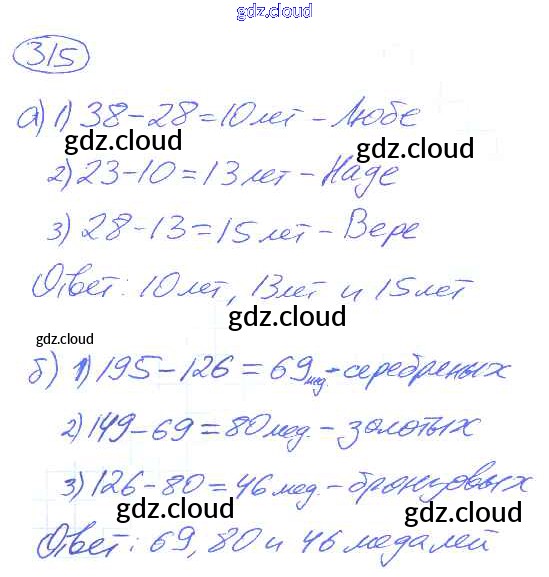 gdz.cloud
315
а) 1) 38 - 28 = 10 лет - Любе
gdz.cloud gdz.cloud
2) 23 - 10 = 13 лет - Наде
3) 28 - 13 = 15 лет - Вере
Ответ: 10 лет, 13 лет и 15 лет
gdz.cloud
gdz.cloud
б) 1) 195 - 126 = 69 мед. - серебреных
2) 149 - 69 = 80 мед. - золотых
3) 126 - 80 = 46 мед. - бронзовых
gdz.cloud gdz.cloud
Ответ: 69, 80 и 46 медалей